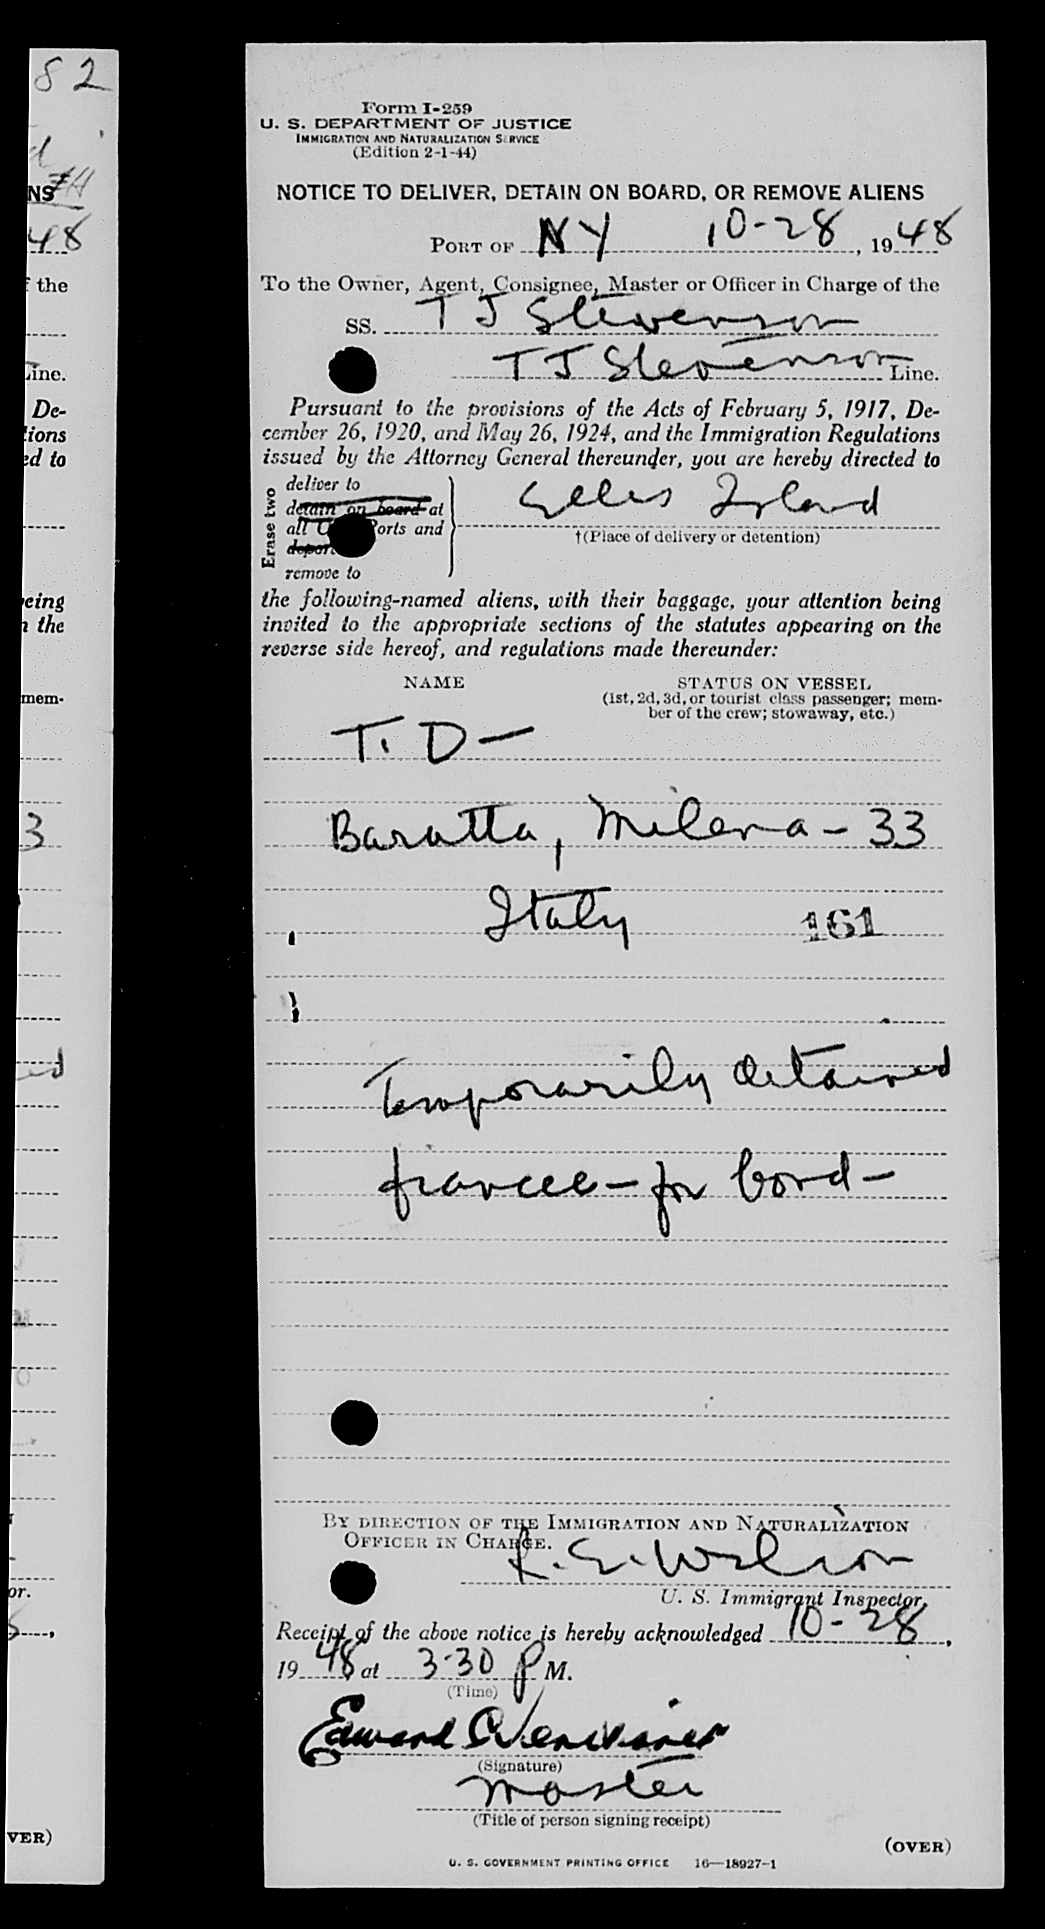 82
d
NS ZH
48
f the
Line.
De-
tions
ed to
eing
n the
mem-
3
ed
or.
VER)
Form I-259
U. S. DEPARTMENT OF JUSTICE
IMMIGRATION AND NATURALIZATION SERVICE
(Edition 2-1-44)
NOTICE TO DELIVER, DETAIN ON BOARD, OR REMOVE ALIENS
PORT OF NY 10-28, 1948
To the Owner, Agent, Consignee, Master or Officer in Charge of the
SS. T J Stevenson
T J Stevenson Line.
Pursuant to the provisions of the Acts of February 5, 1917, De-
cember 26, 1920, and May 26, 1924, and the Immigration Regulations
issued by the Attorney General thereunder, you are hereby directed to
Erase two
deliver to
detain on board at
all U Ports and
deport
remove to
Ellis Island
†(Place of delivery or detention)
the following-named aliens, with their baggage, your attention being
invited to the appropriate sections of the statutes appearing on the
reverse side hereof, and regulations made thereunder:
NAME STATUS ON VESSEL
(1st, 2d, 3d, or tourist class passenger; mem-
ber of the crew; stowaway, etc.)
T. D—
Baratta, Milena - 33
Italy 161
Temporarily detained
fiancee - for bond -
BY DIRECTION OF THE IMMIGRATION AND NATURALIZATION
OFFICER IN CHARGE.
R. E. Wilson
U. S. Immigrant Inspector.
Receipt of the above notice is hereby acknowledged 10-28,
1948 at 3-30 P M.
(Time)
Edward
(Signature)
Master
(Title of person signing receipt)
(OVER)
U. S. GOVERNMENT PRINTING OFFICE 16—18927-1